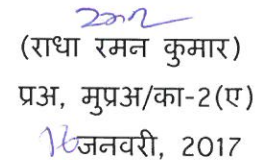 (राधा रमन कुमार)
प्रअ, मुप्रअ/का-2(ए)
16 जनवरी, 2017